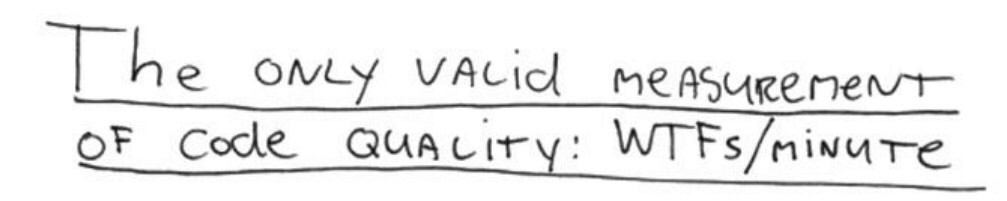 The ONLY VALid MEASUREMENT
OF Code QUALITY: WTFs/MINUTE